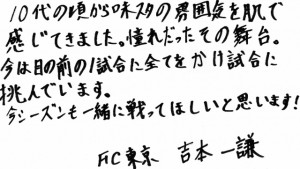 10代の頃から味スタの雰囲気を肌で
感じてきました。憧れだったその舞台。
今は目の前の1試合に全てをかけ試合に
挑んでいます。
今シーズンも一緒に戦ってほしいと思います!
FC東京 吉本一謙